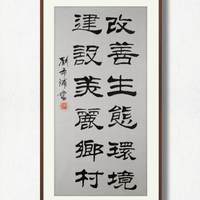 改善生態環境
建設美麗鄉村